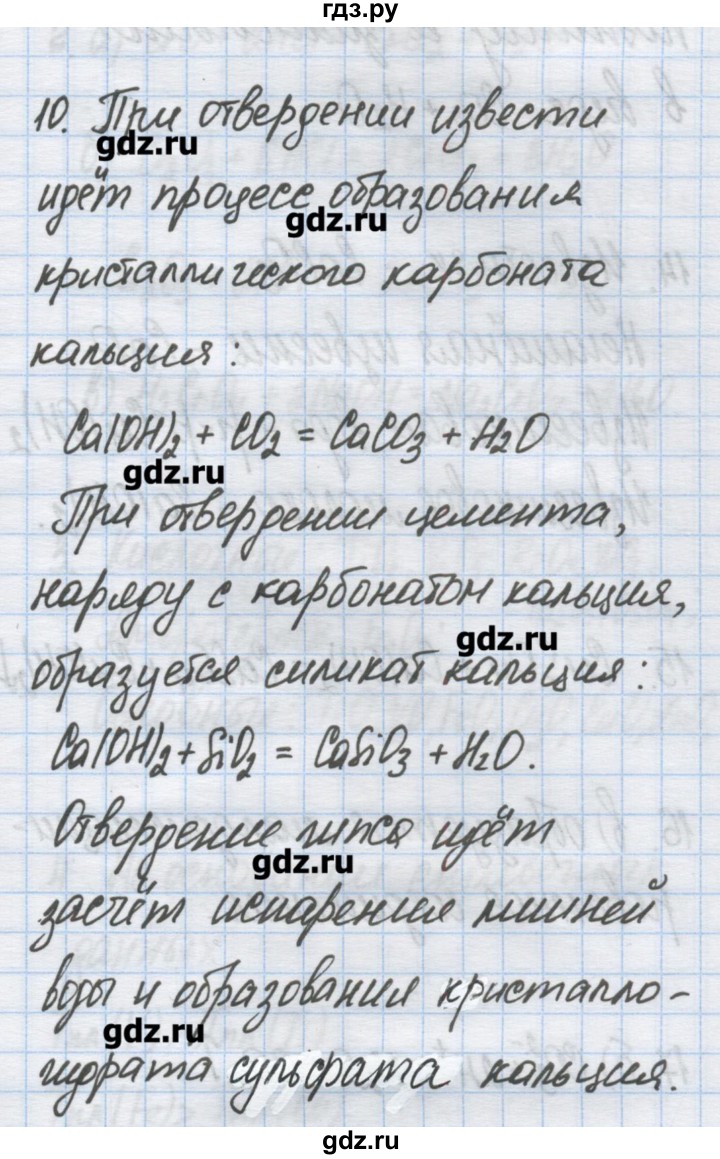 гдз.ру
10. При отвердении извести
gdz.ru
идёт процесс образования
gdz.ru
кристаллического карбоната
кальция:
Ca(OH)₂ + CO₂ = CaCO₃ + H₂O
gdz.ru
При отвердении цемента,
наряду с карбонатом кальция,
gdz.ru
образуется силикат кальция:
Ca(OH)₂ + SiO₂ = CaSiO₃ + H₂O.
Отвердение гипса идёт
gdz.ru
засчёт испарения лишней
воды и образования кристалло-
gdz.ru
гидрата сульфата кальция.
gdz.ru